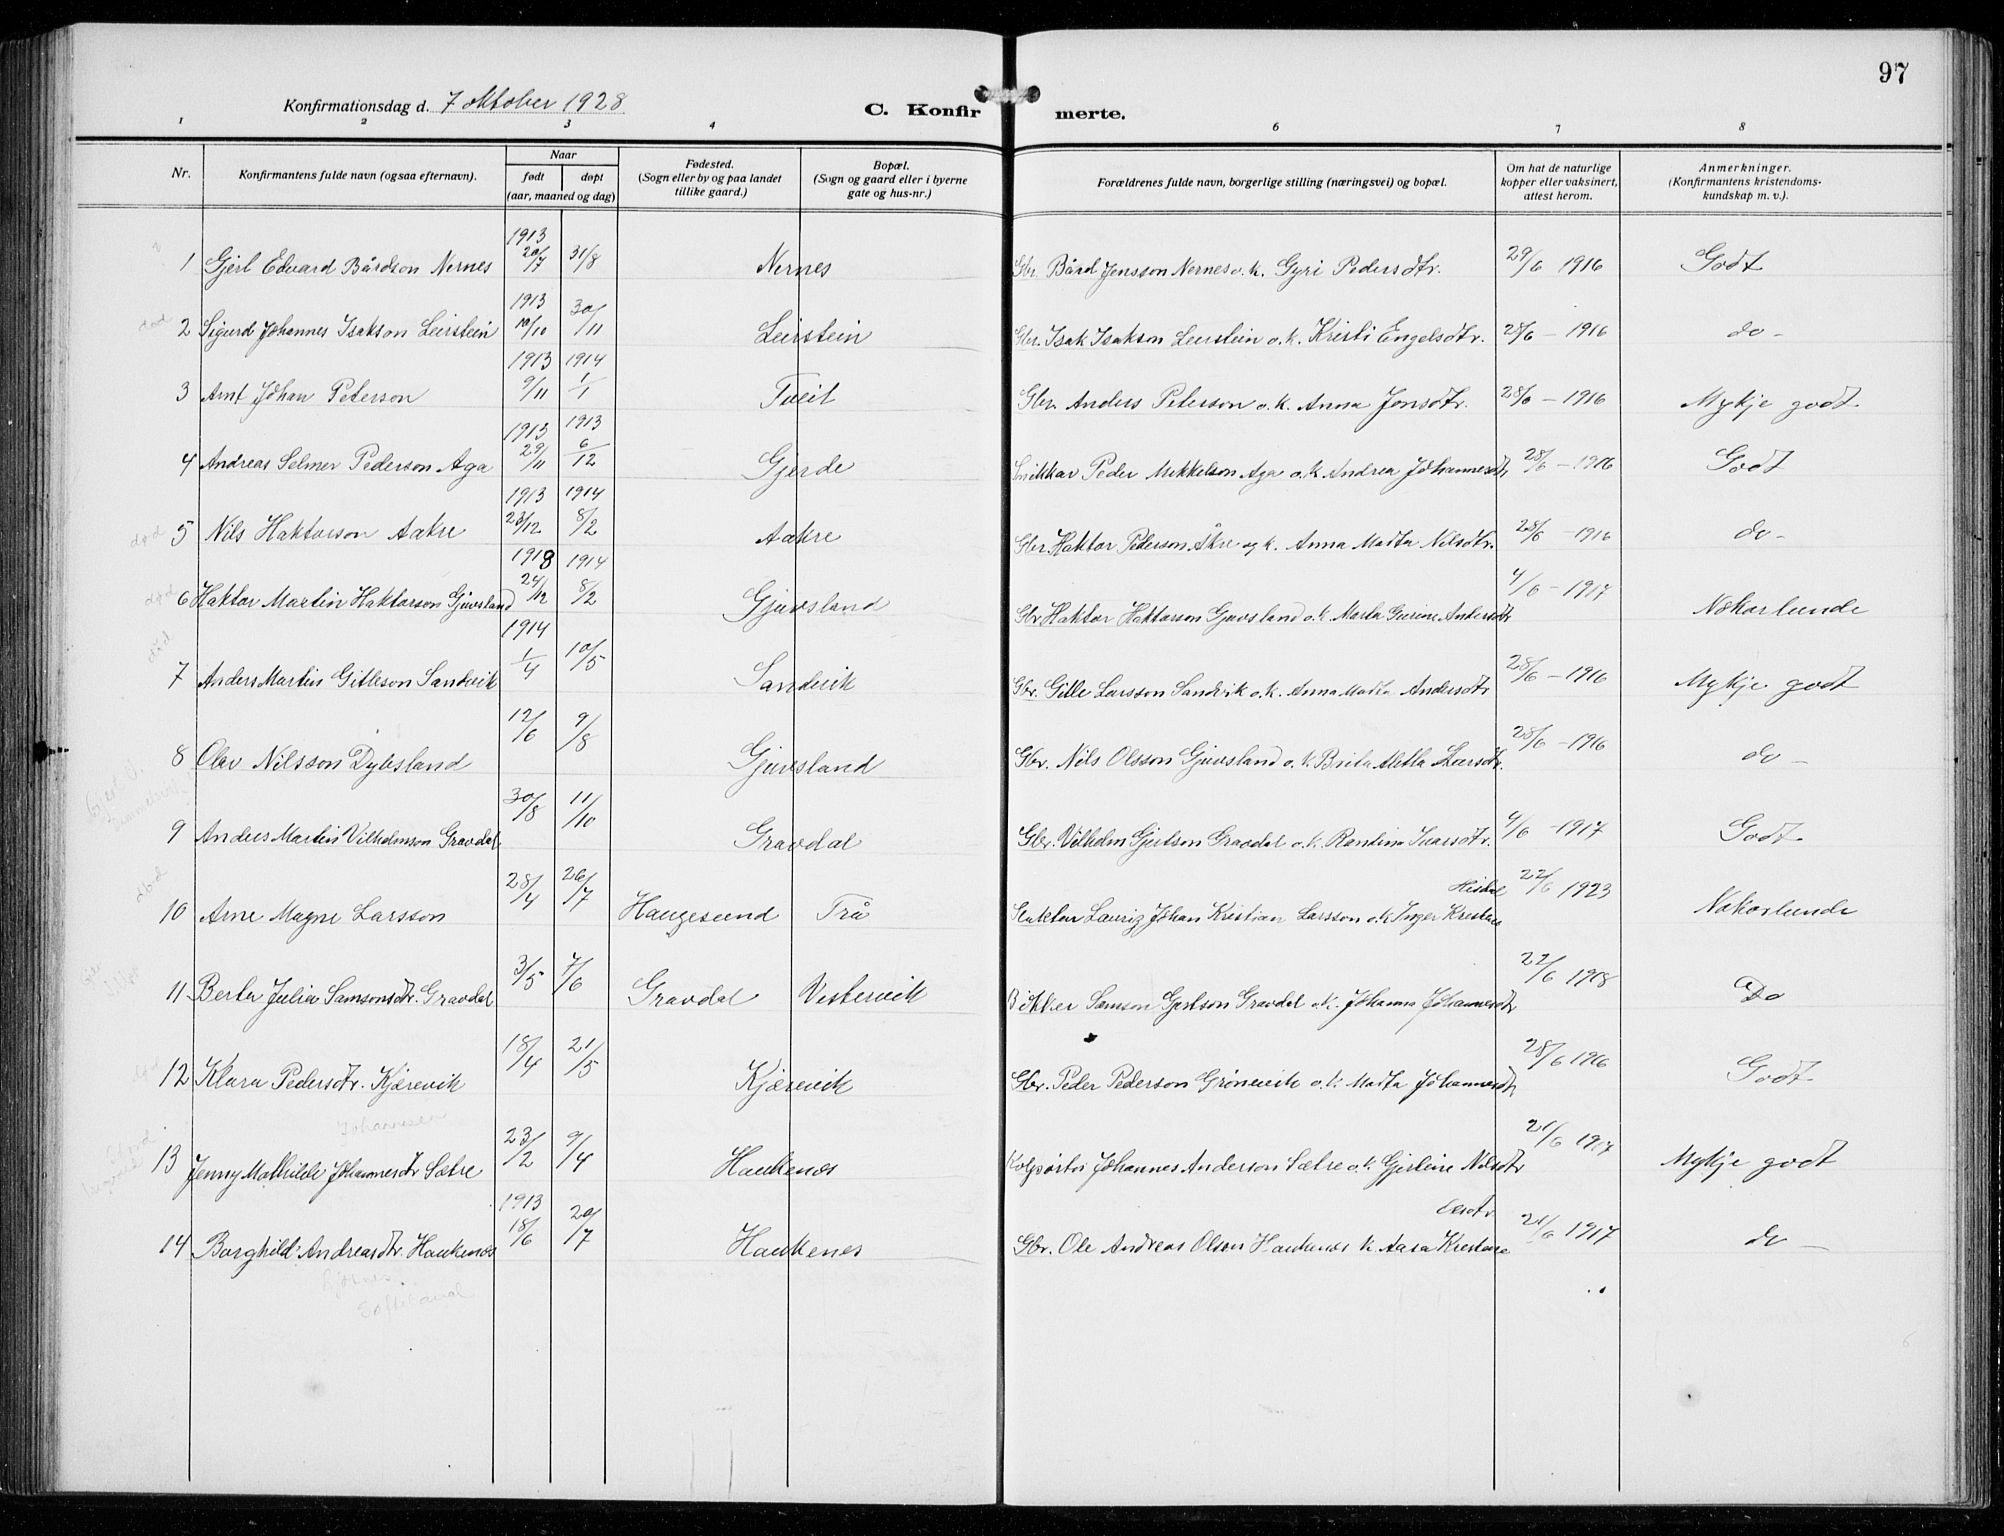 97
Konfirmationsdag d. 7 oktober 1928
C. Konfirmerte.
1 2 3 4 6 7 8
Nr. Konfirmantens fulde navn (ogsaa efternavn). Naar født døpt (aar, maaned og dag) Fødested. (Sogn eller by og paa landet tillike gaard.) Bopæl. (Sogn og gaard eller i byerne gate og hus-nr.) Forældrenes fulde navn, borgerlige stilling (næringsvei) og bopæl. Om hat de naturlige kopper eller vaksinert, attest herom. Anmerkninger. (Konfirmantens kristendomskundskap m. v.).
1 Gjert Edvard Bårdson Nernes 1913 20/7 31/8 Nernes Gbr. Bård Jonsson Nernes o. k. Gyri Pedersdtr. 29/6 1916 Godt
2 Sigurd Johannes Isakson Leirstein 1913 10/10 30/11 Leirstein Gbr. Isak Isakson Leirstein o. k. Kristi Engelsdtr. 28/6 – 1916 do –
3 Arnt Johan Peterson 1913 9/11 1914 1/1 Tveit Gbr. Anders Peterson o. k. Anna Jonsdtr. 28/6 – 1916 Mykje godt.
4 Andreas Selmer Pederson Aga 1913 29/11 1913 6/12 Gjerde Snikkar Peder Mikkelson Aga o. k. Andrea Johannesdtr 28/6 – 1916 Godt
død 5 Nils Haktorson Aakre 1913 23/12 1914 8/2 Aakre Gbr. Haktor Pederson Åkre og k. Anna Marta Nilsdtr. 28/6 – 1916 do –
død 6 Haktor Martin Haktorson Gjuvsland 1918 24/12 1914 8/2 Gjuvsland Gbr. Haktor Haktorson Gjuvsland o. k. Marta Gurine Andersdtr 4/6 – 1917 Nokorlunde
død 7 Anders Martin Gitleson Sandvik 1914 1/4 10/5 Sandvik Gbr. Gitle Larsson Sandvik o. k. Anna Marta Andersdtr 28/6 – 1916 Mykje godt
8 Olav Nilsson Dybsland 12/6 9/8 Gjuvsland Gbr. Nils Olsson Gjuvsland o. k. Brita Larsdtr. 28/6 – 1916 do –
9 Anders Martin Vilhelmson Gravdal 30/8 11/10 Gravdal Gbr. Vilhelm Gjertson Gravdal o. k. Rantina Ivarsdtr. 4/6 – 1917 Godt
død 10 Arne Magne Larsson 28/4 26/7 Haugesund Trå Slaktar Lauriz Johan Kristian Larsson o. k. Inger Kristine 22/6 1923 Nokorlunde
11 Berta Julia Samsonsdtr. Gravdal 3/5 7/6 Gravdal Vestervik Bøkker Samson Gjertson Gravdal o. k. Johanna Johannesdtr 22/6 1918 Do
12 Klara Pedersdtr. Kjærevik 18/4 21/5 Kjærevik Gbr. Peder Pederson Grönevik o. k. Marta Johannesdtr 28/6 1916 Godt
Johannesen
13 Jenny Mathilde Johannesdtr Sætre 23/2 9/4 Haukenes Kolportør Johannes Anderson Sætre o. k. Gjerline Nilsdtr 21/6 1917 Mykje godt
14 Borghild Andreasdtr. Haukenes 1913 18/6 20/7 Haukenes Gbr. Ole Andreas Olson Haukenes k. Aasa Kristine 21/6 1917 do –